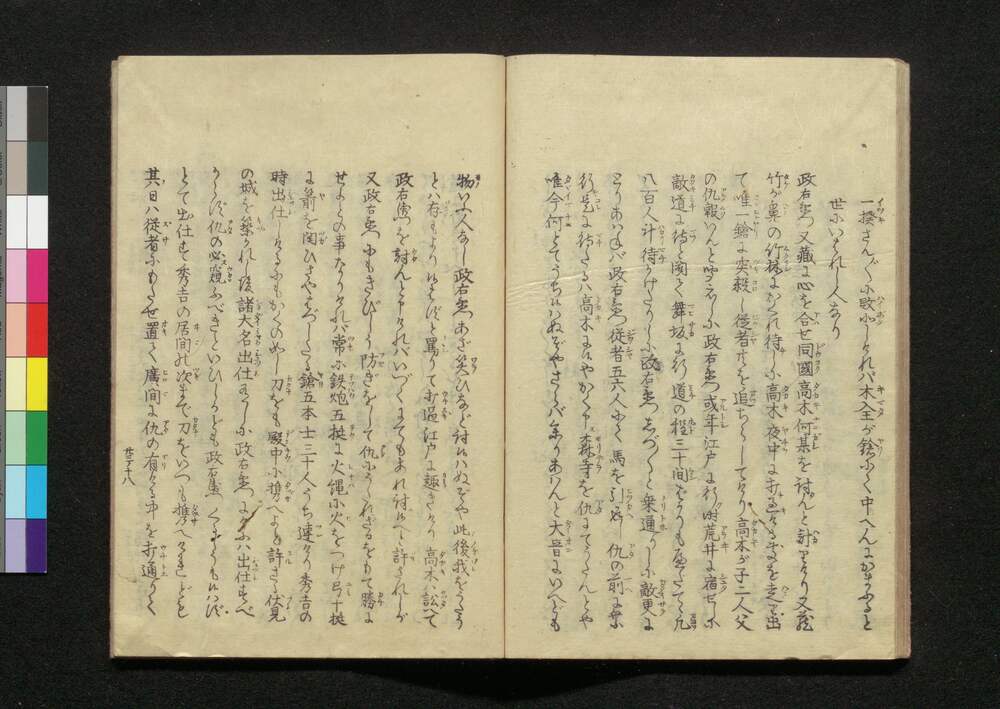 一揆さん〴〵に敗北しけれバ木全が鎗ふく中へんにかまふると
世にいはれし人なり
政右衛門又藏に心を合せ同國高木何某を討んと計りけり又藏
竹が鼻の竹林にかくれ待に高木夜中に打過けるを走り出
て唯一鎗に突殺し侵者共を追ちらしてけり高木が子二人父
の仇報いんと思ひしに政右衛門或年江戸に行時荒井に宿せしに
敵道に待と聞く舞坂に行道の程三十間をよりも隔たてて凡
八百人計待かけたりしに政右衛門しづ〳〵と乗通りしに敵更に
とりあはねバ政右衛門従者五六人にて馬を引返し仇の前に来
唯今何とてうちはぬぞやさらバ参りあはんと大音にいへども
物いふ人なし政右衛門あざ笑ひなど討はぬぞや此後我をうたう
とハ存もよりはずと罵りて打過江戸に趣きけり高木訟へて
政右衛門を討んとしけれバいづくにてもあれ討へと許されしが
又政右衛門にもきびしう防ぎをして仇にうたれざるをもて勝に
せよとの事なりけれバ常に鉄炮五挺に火縄に火をつけ弓十挺
に箭を関ひさやはづしたる鎗五本士三十人うち連けり秀吉の
時出仕しけるにもかくのごとし刀をも殿中に携へよと許さる伏見
の城を築かれし後諸大名出仕有しに政右衛門にハ出仕すべ
からず仇の必窺ふべきといひしかども政右衛門くるしうもはず
とて出仕す秀吉の居間の次まで刀をいつも携へけれども
其日ハ従者にもたせ置く廣間に仇の有ける中を打通りて
廿丁八